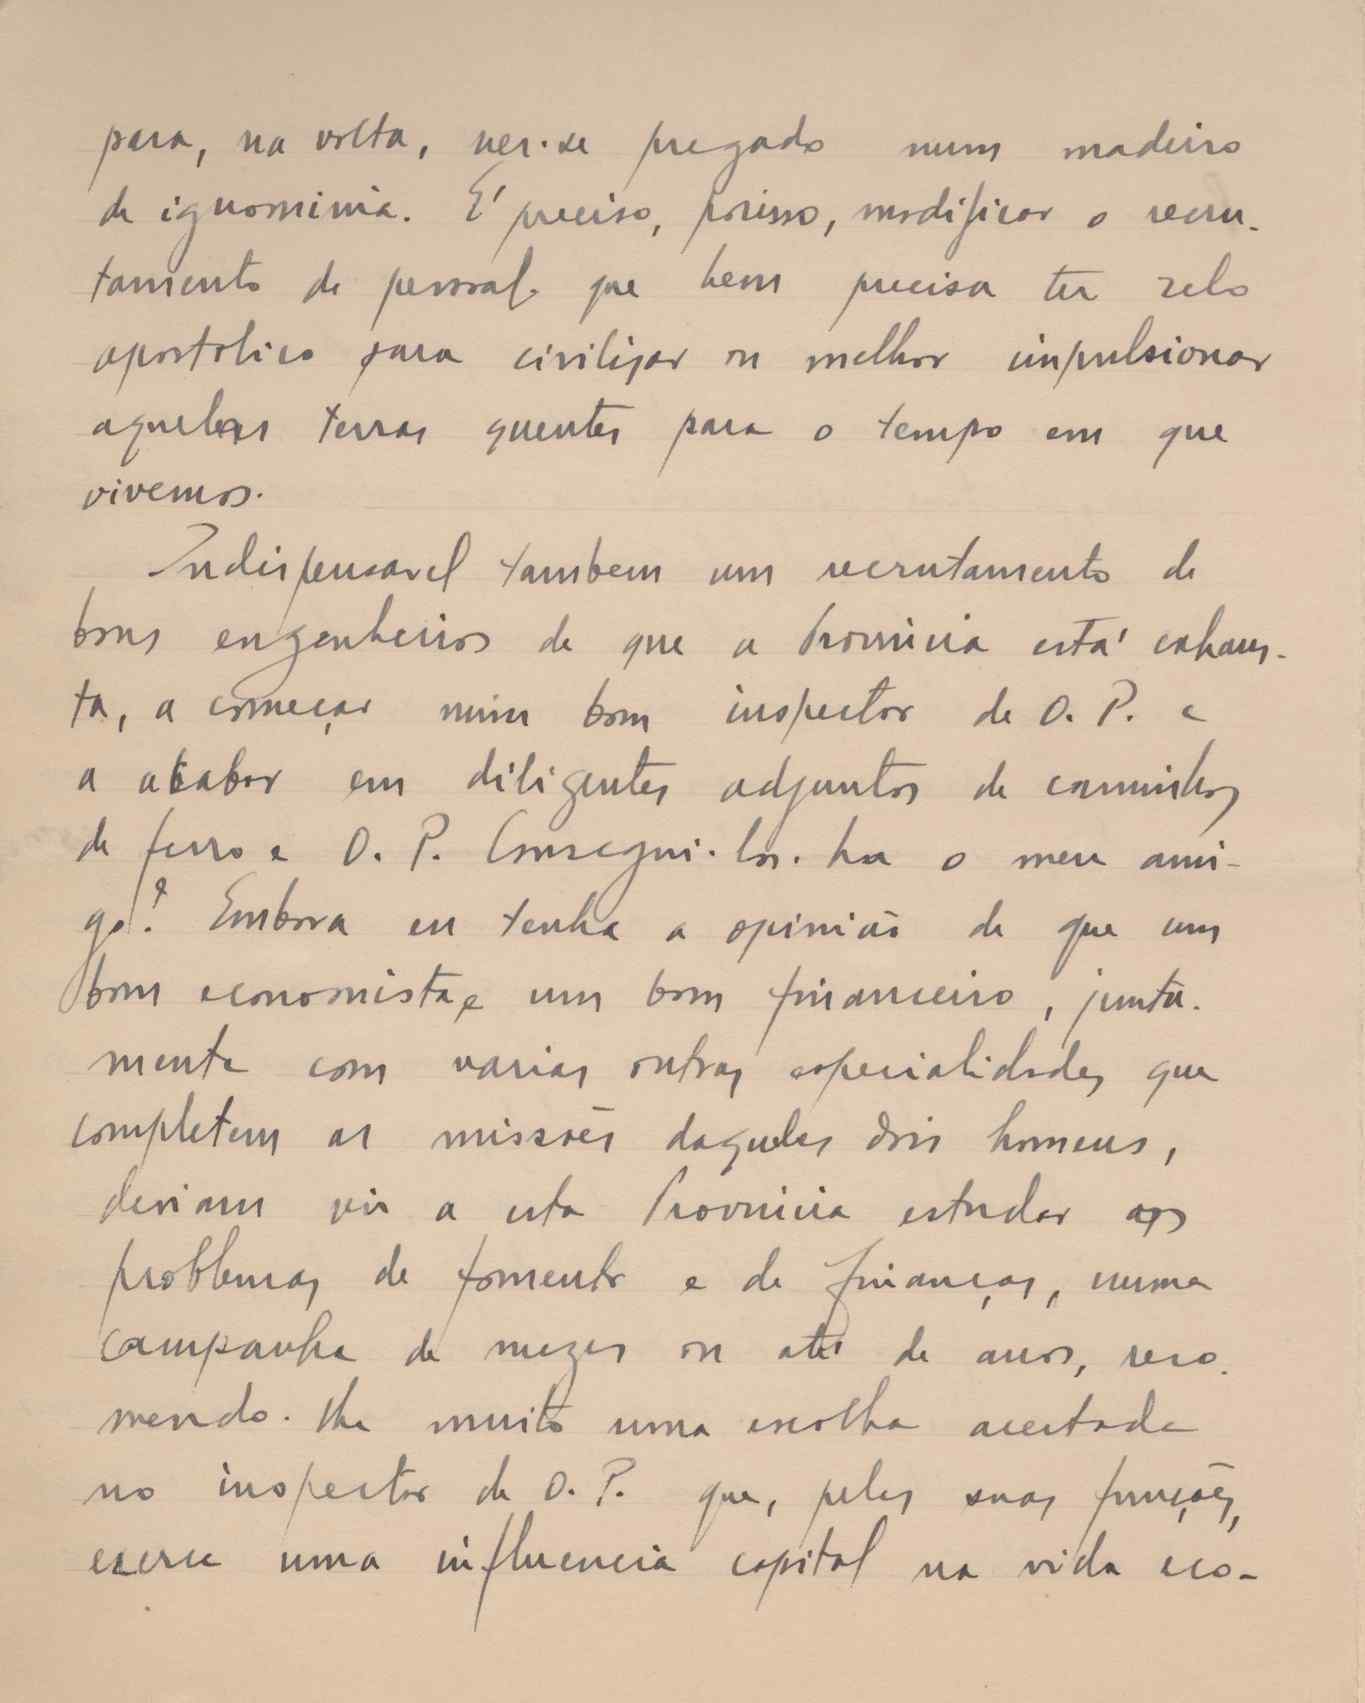 para, na volta, ver-se pregado num madeiro
de ignominia. É preciso, porisso, modificar o recru-
tamento de pessoal que bem precisa ter zelo
apostolico para civilizar ou melhor impulsionar
aquelas terras quentes para o tempo em que
vivemos.
Indispensavel tambem um recrutamento de
bons engenheiros de que a Provincia está exhaus-
ta, a começar num bom inspector de O. P. e
a acabar em diligentes adjuntos de caminhos
de ferro e O. P. Consegui-los-ha o meu ami-
go? Embora eu tenha a opinião de que um
bom economista e um bom financeiro, junta-
mente com varias outras especialidades que
completem as missões daqueles dois homens,
deviam vir a esta Provincia estudar os
problemas de fomento e de finanças, numa
campanha de mezes ou até de anos, reco-
mendo-lhe muito uma escolha acertada
no inspector de O. P. que, pelas suas funções,
exerce uma influencia capital na vida eco-